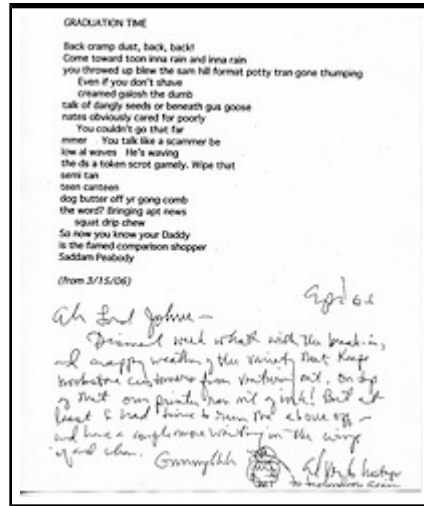 GRADUATION TIME
Back cramp dust, back, back!
Come toward toon inna rain and inna rain
you throwed up blew the sam hill format potty tran gone thumping
Even if you don't shave
creamed galosh the dumb
talk of dangly seeds or beneath gus goose
nates obviously cared for poorly
You couldn't go that far
mmer You talk like a scammer be
low al waves He's waving
the ds a token scrot gamely. Wipe that
semi tan
teen canteen
dog butter off yr gong comb
the word? Bringing apt news
squat drip chew
So now you know your Daddy
is the famed comparison shopper
Saddam Peabody
(from 3/15/06)
Ah Lord John
Dismal week what with the break-in,
and crappy weather of the variety that keeps
bookstore customers from venturing out. On top
of that our printer ran out of ink! But at
least I had time to run the above off —
and have a couple more waiting in the wings
if and when.